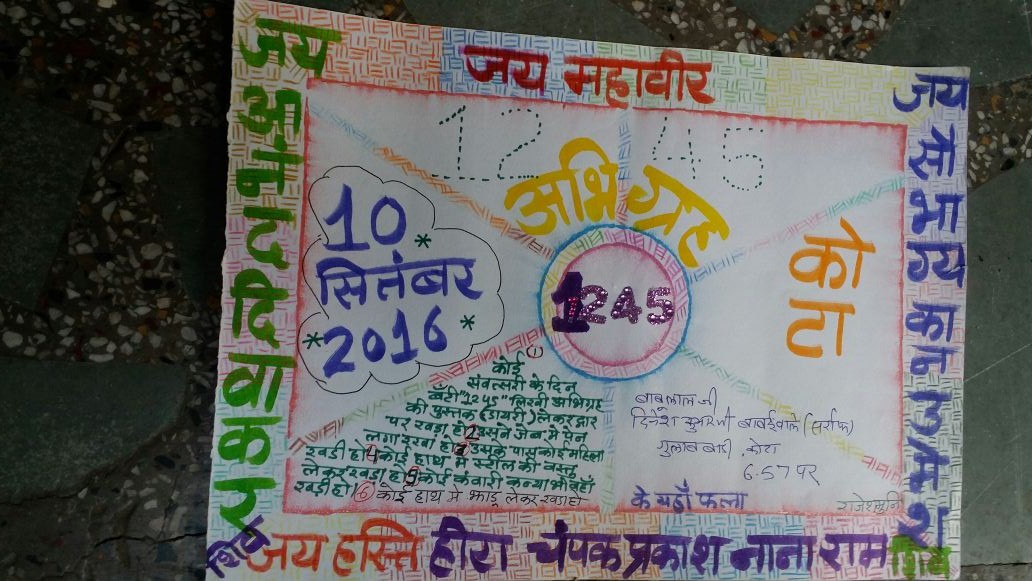 जय महावीर
जय आनंद दिवाकर
जय सौभाग्य कान उमेश
12 45
अभिग्रह
10
सितंबर
2016
1245
को
टा
कोई ①
संवत्सरी के दिन
"1245" लिखी अभिग्रह
की पुस्तक (डायरी) लेकर द्वार
पर खड़ा हो 2 उसने जेब में पेन
लगा रखा हो 3 उसके पास कोई महिला
खड़ी हो 4 कोई हाथ में स्टील की वस्तु
लेकर खड़ा हो 5 कोई कंवारी कन्या भी वहाँ
खड़ी हो ⑥ कोई हाथ में झाडू लेकर खड़ा हो
बाबूलाल जी
दिनेश कुमारजी बाबईवाले (सर्राफ)
गुलाब बाडी, कोटा
6.57 पर
के यहाँ फला
राजेशमुनि
जय हस्ति हीरा चंपक प्रकाश नाना राम